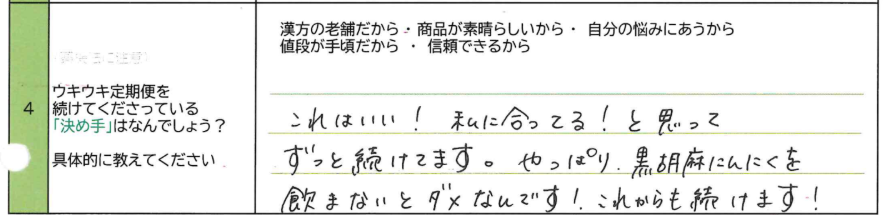 4
ウキウキ定期便を
続けてくださっている
「決め手」はなんでしょう？
具体的に教えてください
漢方の老舗だから・商品が素晴らしいから・ 自分の悩みにあうから
値段が手頃だから ・ 信頼できるから
これはいい！ 私に合ってる！と思って
ずっと続けてます。やっぱり、黒胡麻にんにくを
飲まないとダメなんです！これからも続けます！